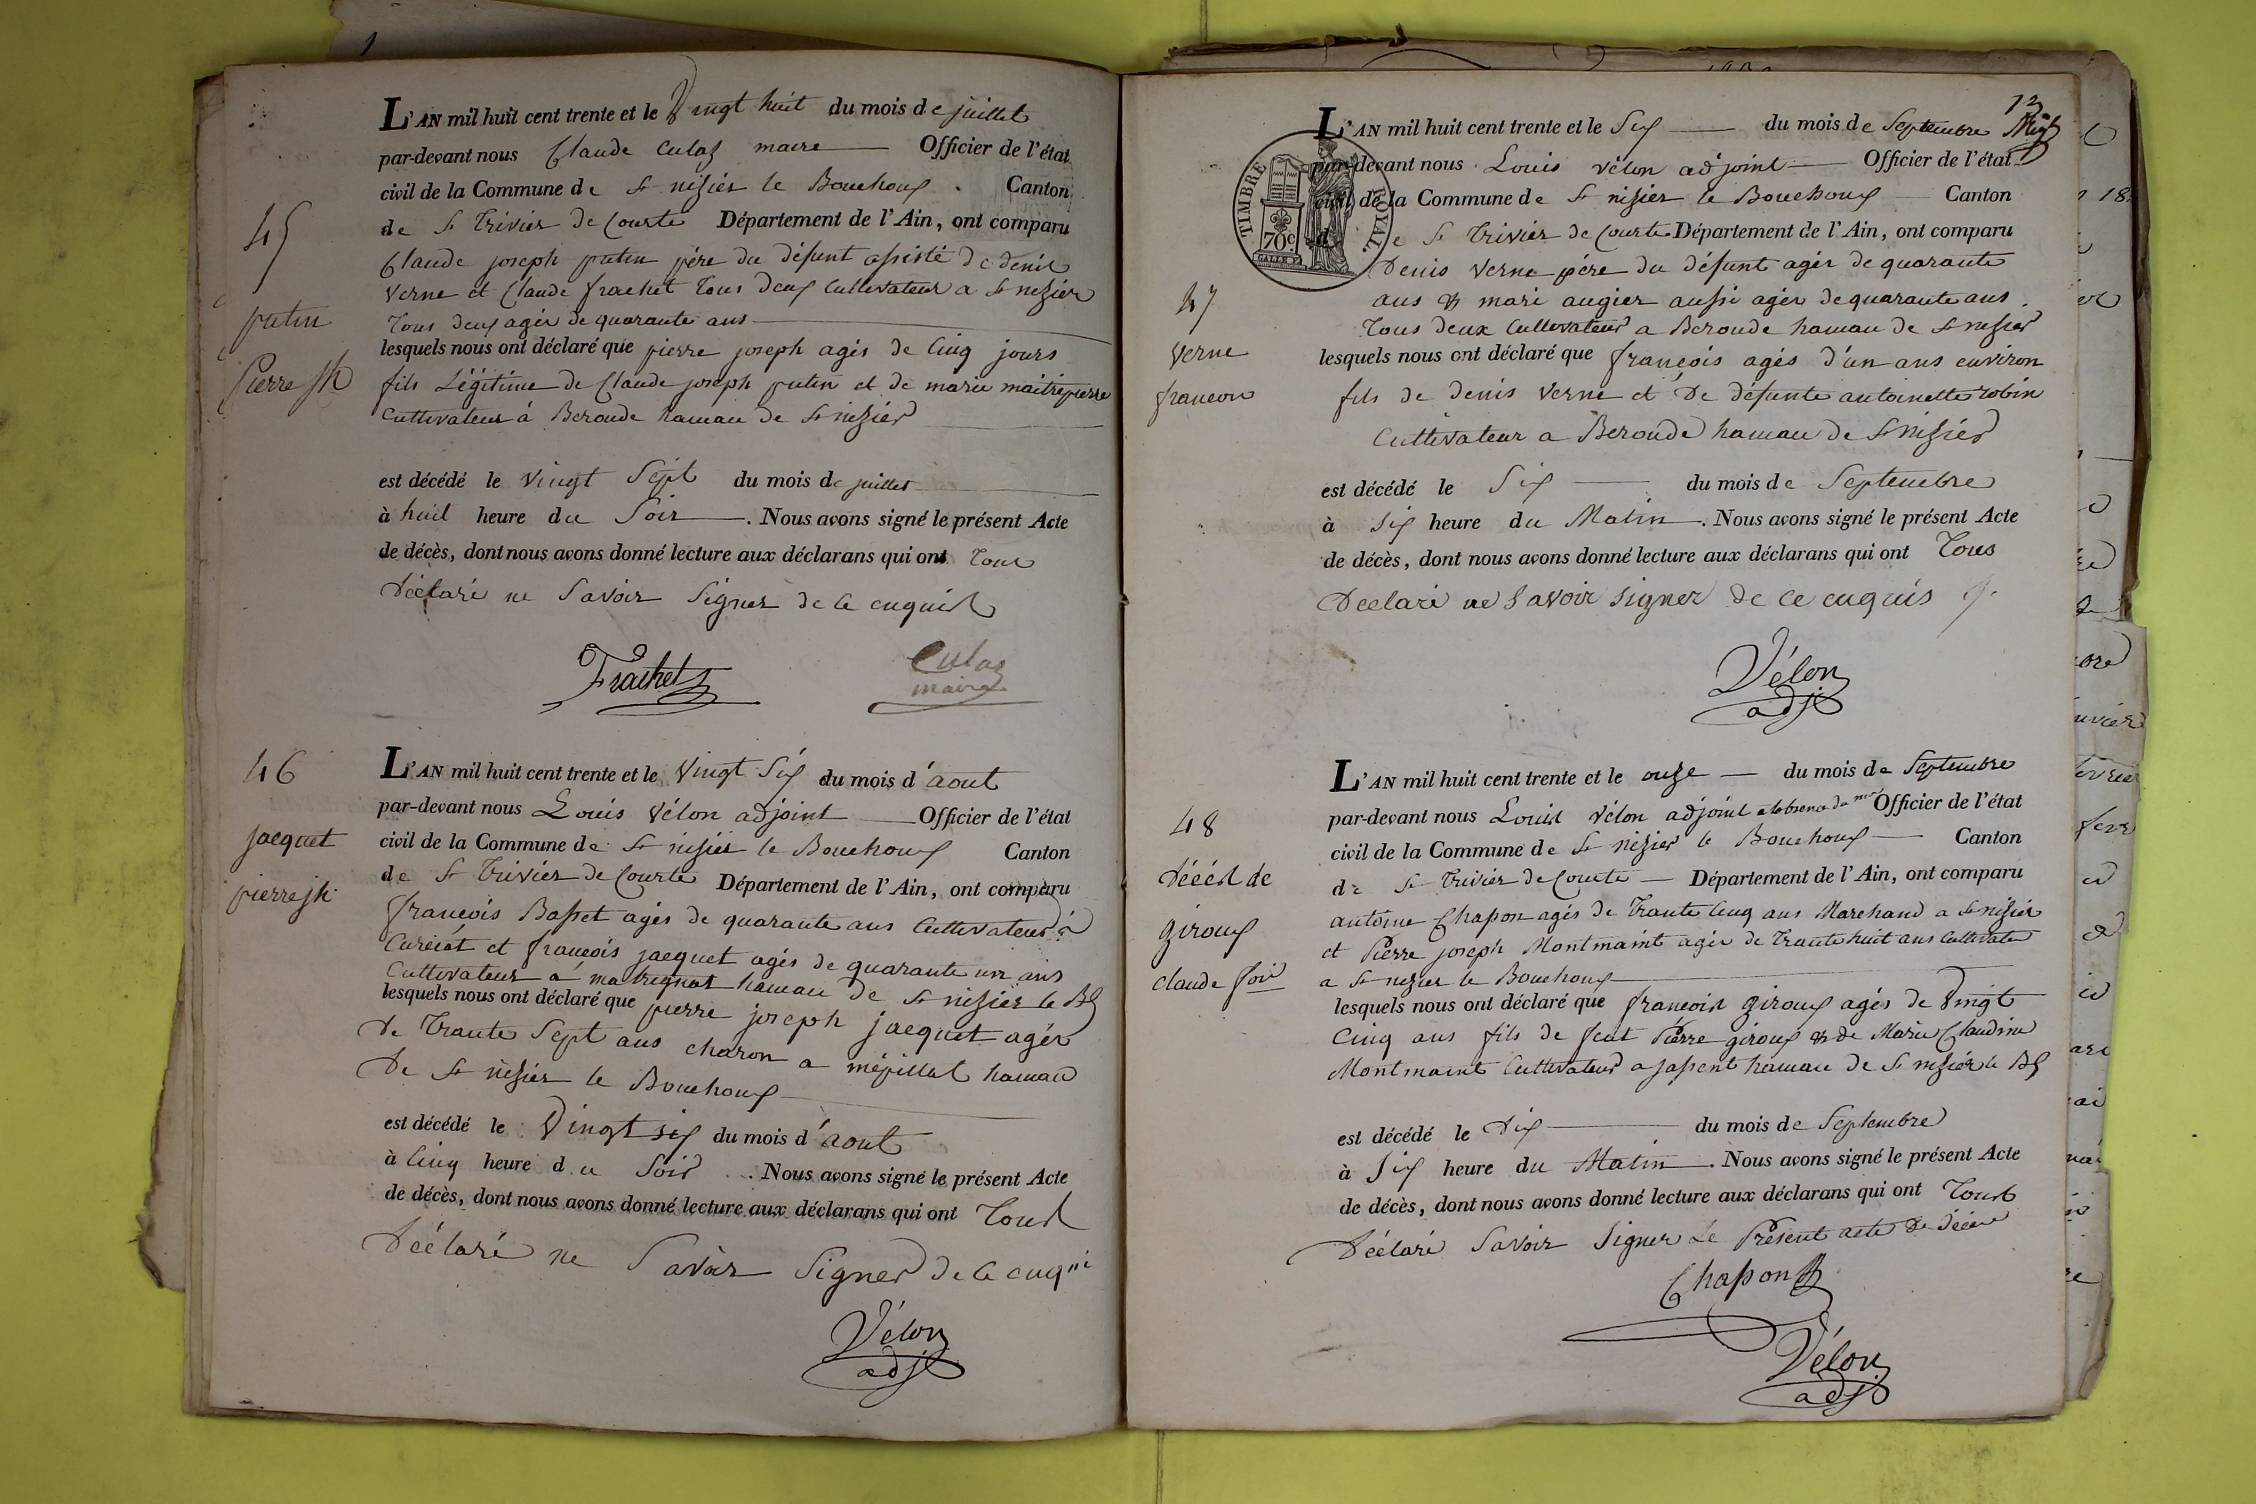 L'AN mil huit cent trente et le Vingt huit du mois de juillet
par-devant nous Claude Culaz maire Officier de l'état
civil de la Commune de St nizier le Bouchoux. Canton
de St Trivier de Courte Département de l'Ain, ont comparu
Claude joseph putin pére du défunt assisté de denis
Verne et Claude frachet Tous deux Cultivateur a St nizier
Tous deux agés de quarante ans
lesquels nous ont déclaré que pierre joseph agés de Cinq jours
fils Légitime de Claude joseph putin et de marie maitrepierre
Cultivateur á Beroude hameau de St nizier
est décédé le vingt Sept du mois de juillet
à huit heure du Soir. Nous avons signé le présent Acte
de décès, dont nous avons donné lecture aux déclarans qui ont Tous
Déclaré ne Savoir Signer de ce enquis
45
putin
Pierre jh
Frachet
Culaz
maire
46
jacquet
pierre jh
L'AN mil huit cent trente et le Vingt Six du mois d'aout
par-devant nous Louis Vélon adjoint Officier de l'état
civil de la Commune de St nizier le Bouchoux Canton
de St Trivier de Courte Département de l'Ain, ont comparu
françois Basset agés de quarante ans Cultivateur à
Curciát et françois jacquet agés de quarante un ans
Cultivateur a hameau de St nizier le Bx
lesquels nous ont déclaré que pierre joseph jacquet agés
de Trante Sept ans charon a mépillat hameau
De St nizier le Bouchoux
est décédé le Vingt six du mois d'aout
à Cinq heure du Soir. Nous avons signé le présent Acte
de décès, dont nous avons donné lecture aux déclarans qui ont Tous
Déclaré ne Savoir Signer de ce enquis
Vélon
adjt
TIMBRE ROYAL.
70c
L'AN mil huit cent trente et le Six du mois de Septembre
par-devant nous Louis Vélon adjoint Officier de l'état
civil de la Commune de St nizier le Bouchoux Canton
de St Trivier de Courte Département de l'Ain, ont comparu
Denis Verne pére du défunt agés de quarante
ans & mari augier aussi agés de quarante ans.
Tous deux Cultivateur a Beroude hameau de St nizier
lesquels nous ont déclaré que françois agés d'un ans environ
fils de denis Verne et De défunte antoinette robin
Cultivateur a Beroude hameau de St nizier
est décédé le Six du mois de Septembre
à six heure du Matin. Nous avons signé le présent Acte
de décès, dont nous avons donné lecture aux déclarans qui ont Tous
Déclaré ne Savoir signer de ce enquis
47
Verne
francois
Vélon
adjt
48
Décés de
giroux
Claude
L'AN mil huit cent trente et le onze du mois de Septembre
par-devant nous Louis Vélon adjoint a labsence du mre Officier de l'état
civil de la Commune de St nizier le Bouchoux Canton
de St Trivier de Courte Département de l'Ain, ont comparu
antoine Chapon agés de Trante Cinq ans Marchand a St nizier
et Pierre joseph Montmaint agés de Trante huit ans Cultivate
a St nizier le Bouchoux
lesquels nous ont déclaré que françois giroux agés de Vingt
Cinq ans fils de feut Pierre giroux & de Marie Claudine
Montmaint Cultivateur a jassent hameau de St nizier le Bx
est décédé le Dix du mois de Septembre
à Six heure du Matin. Nous avons signé le présent Acte
de décès, dont nous avons donné lecture aux déclarans qui ont Tous
Déclaré Savoir Signer Le Présent acte de décés
Chapon
Vélon
adjt